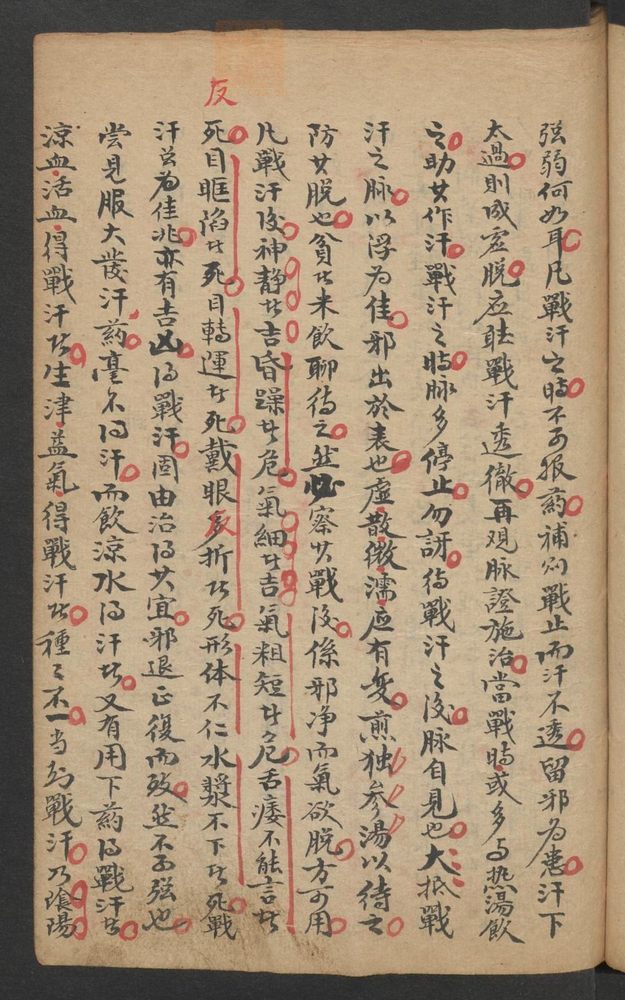 強弱何如耳凡戰汗之時不可服藥補則戰止而汗不透留邪為患汗下
太過則成虛脫应聽戰汗透徹再观脉證施治當戰時或多与热湯飲
之助其作汗戰汗之時脉多停止勿訝待戰汗之後脉自見也大抵戰
汗之脉以浮为佳邪出於表也虛散微濡应有变煎独参湯以待之
防其脱也貧者米飲聊待之然必察其戰後係邪净而氣欲脱方可用
凡戰汗後神静者吉昏躁者危氣細者吉氣粗短者危舌痿不能言者
死目眶陷者死目轉運者死戴眼反折者死形体不仁水漿不下者死戰
反
汗岂为佳兆亦有吉凶得戰汗固由治得其宜邪退正復而致然不可强也
尝見服大發汗藥毫不得汗而飲涼水得汗者又有用下藥得戰汗者
涼血活血得戰汗者生津益氣得戰汗者種々不一当知戰汗乃陰陽